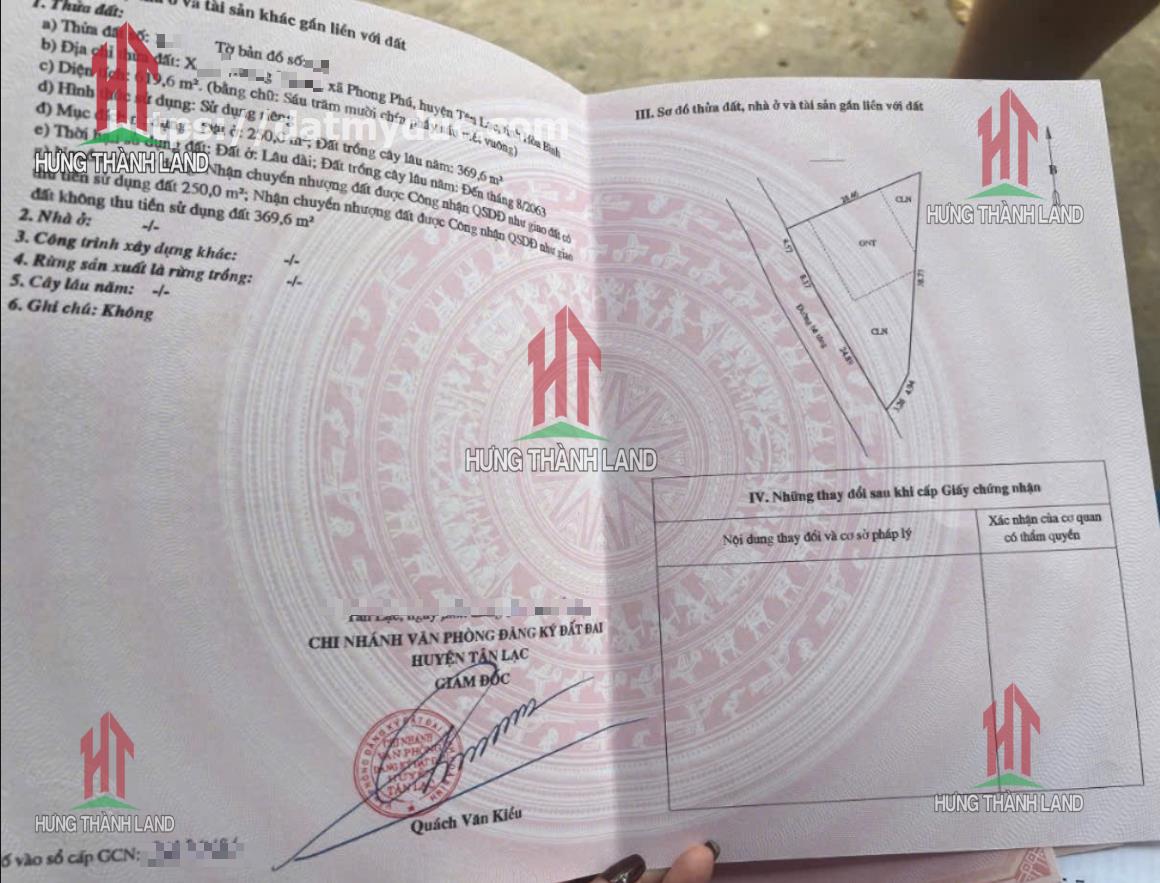 ở và tài sản khác gắn liền với đất
1. Thửa đất:
a) Thửa đất số:
Tờ bản đồ số:
b) Địa chỉ thửa đất: X
xã Phong Phú, huyện Tân Lạc, tỉnh Hòa Bình
c) Diện tích: 619,6 m². (bằng chữ: Sáu trăm mười chín phẩy sáu mét vuông)
d) Hình thức sử dụng: Sử dụng riêng
đ) Mục đích sử dụng: Đất ở: 250,0 m²; Đất trồng cây lâu năm: 369,6 m²
e) Thời hạn sử dụng đất: Đất ở: Lâu dài; Đất trồng cây lâu năm: Đến tháng 8/2063
Nhận chuyển nhượng đất được Công nhận QSDĐ như giao đất có
thu tiền sử dụng đất 250,0 m²; Nhận chuyển nhượng đất được Công nhận QSDĐ như giao
đất không thu tiền sử dụng đất 369,6 m²
2. Nhà ở: -/-
3. Công trình xây dựng khác: -/-
4. Rừng sản xuất là rừng trồng: -/-
5. Cây lâu năm: -/-
6. Ghi chú: Không
https://datmydinh.com
HƯNG THÀNH LAND
III. Sơ đồ thửa đất, nhà ở và tài sản gắn liền với đất
B
HƯNG THÀNH LAND
CLN
ONT
4,57
8,37
CLN
Đường bê tông
24,89
4,94
HƯNG THÀNH LAND
IV. Những thay đổi sau khi cấp Giấy chứng nhận
Nội dung thay đổi và cơ sở pháp lý
Xác nhận của cơ quan
có thẩm quyền
CHI NHÁNH VĂN PHÒNG ĐĂNG KÝ ĐẤT ĐAI
HUYỆN TÂN LẠC
GIÁM ĐỐC
CHI NHÁNH
VĂN PHÒNG
ĐĂNG KÝ ĐẤT ĐAI
HUYỆN
TÂN LẠC
Quách Văn Kiều
HƯNG THÀNH LAND
HƯNG THÀNH LAND
ố vào sổ cấp GCN: